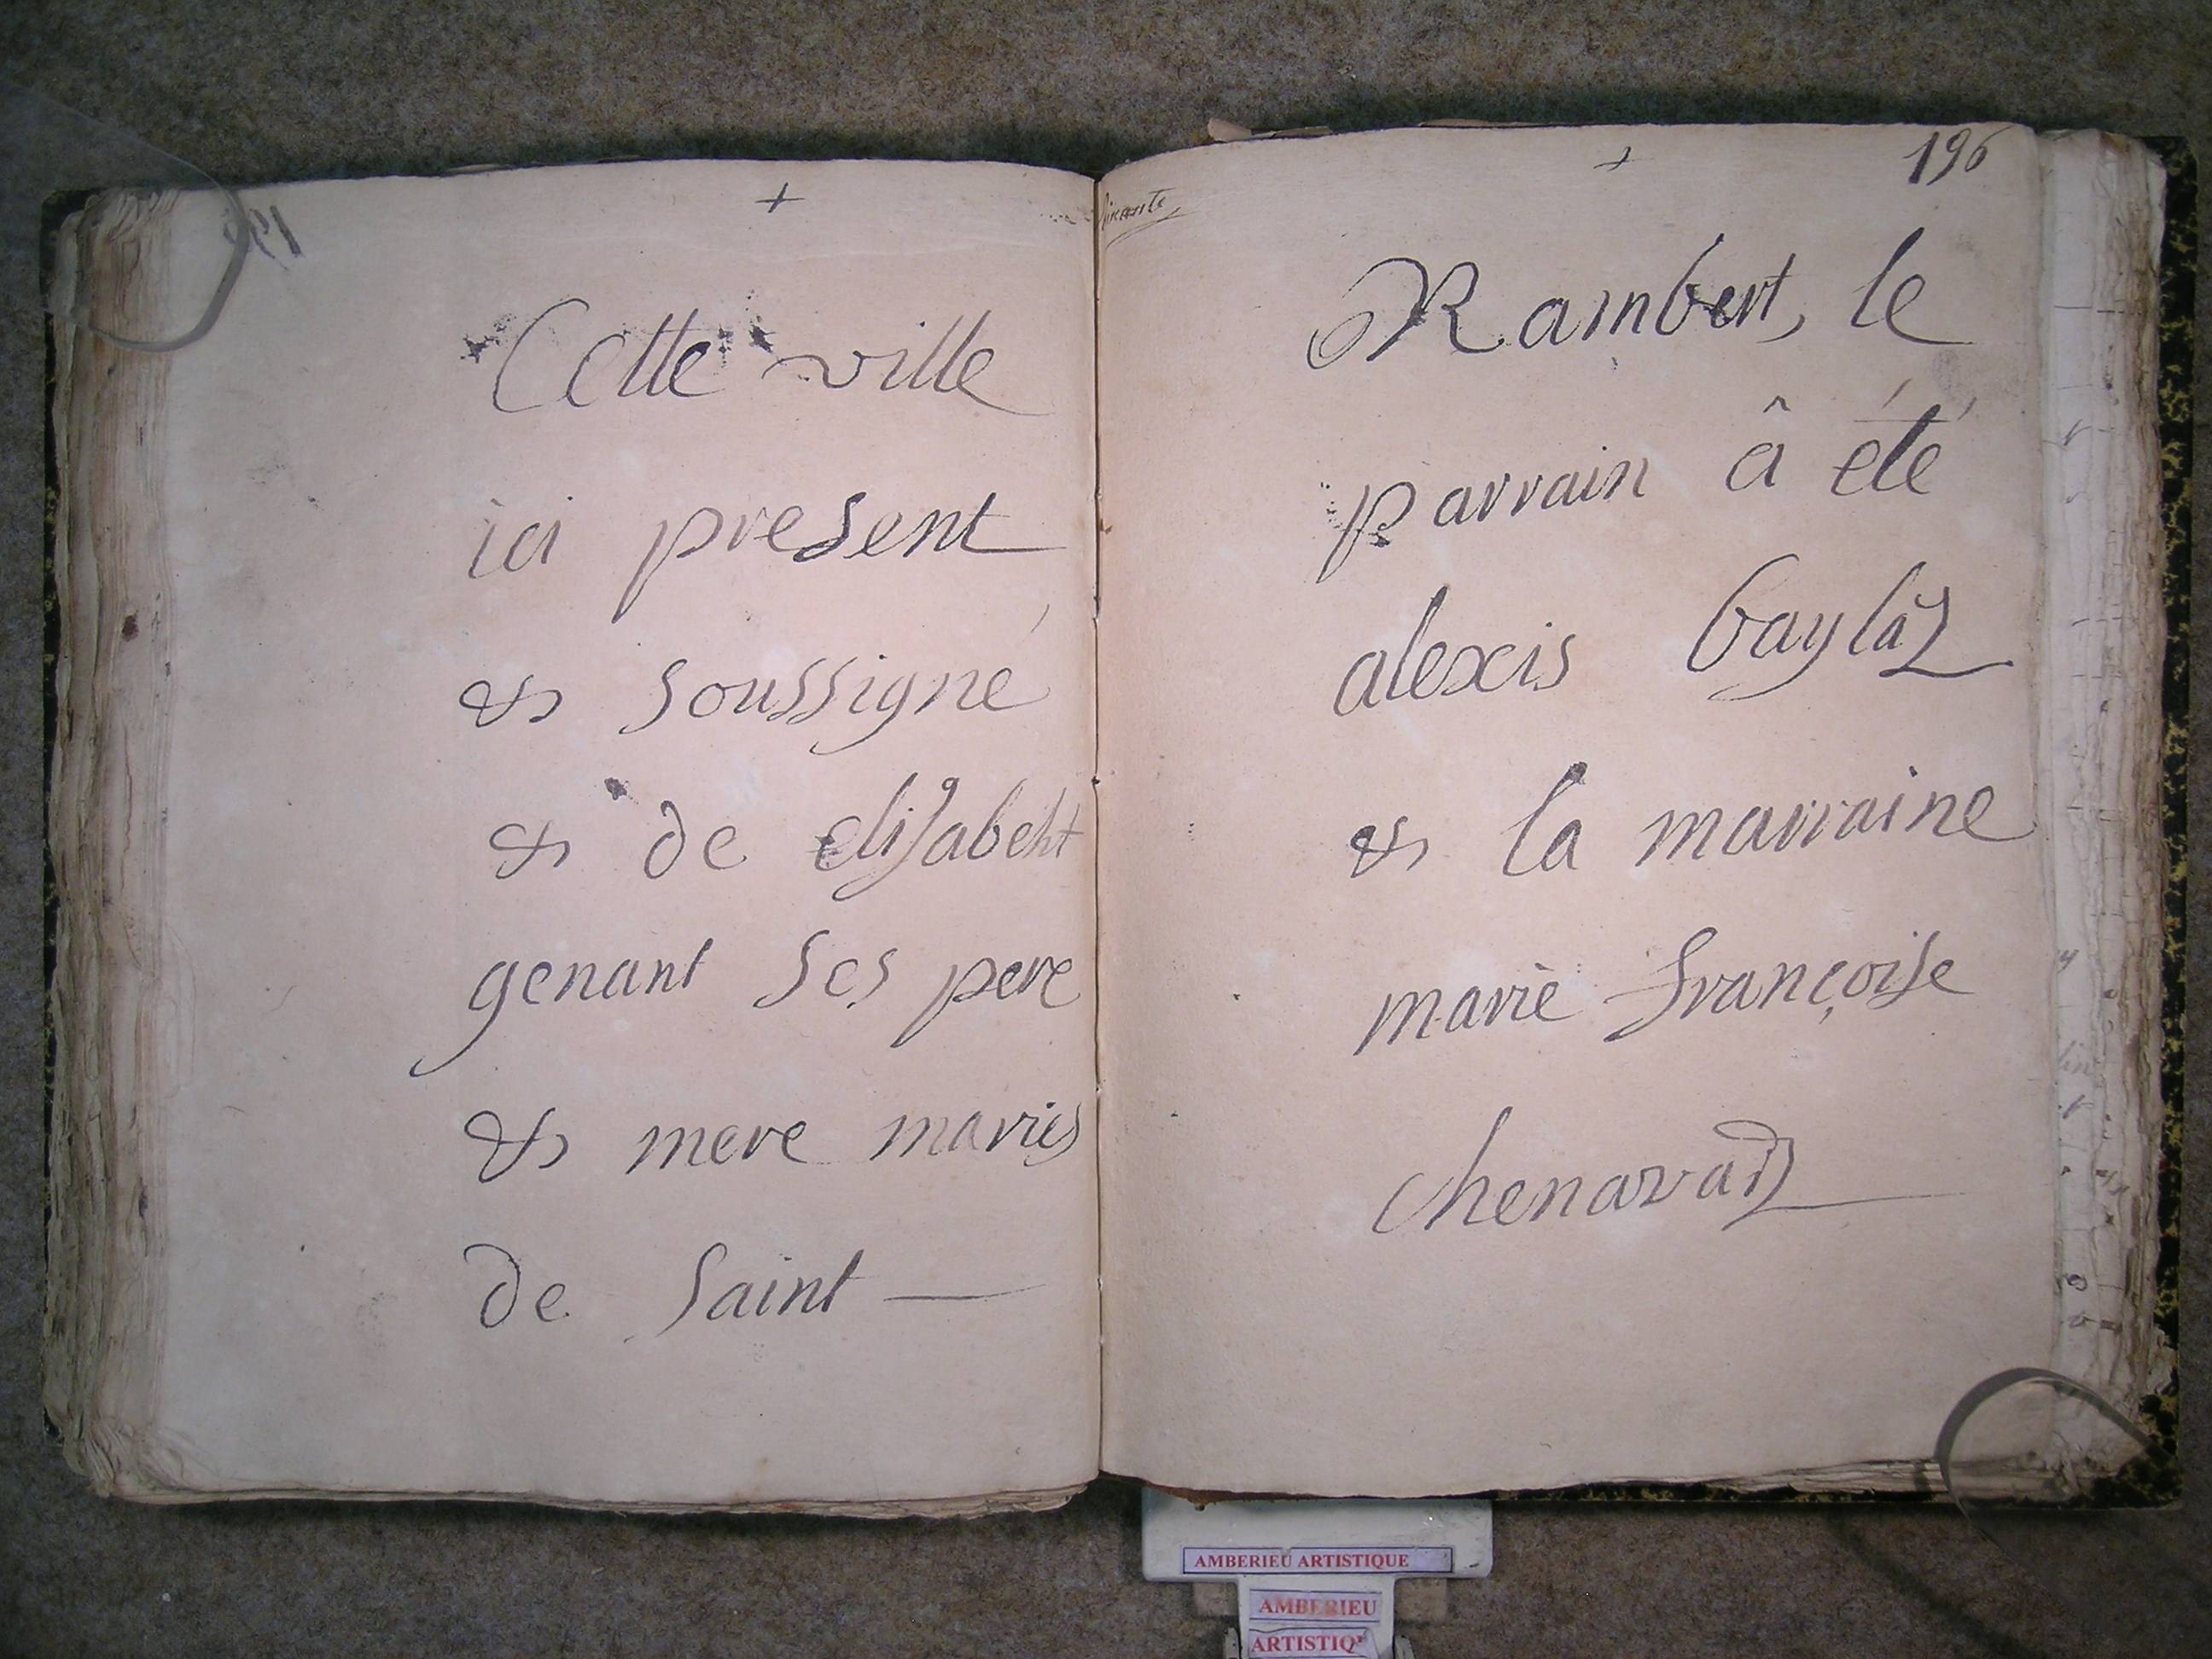 +
Cette ville
ici present
& soussigné
& de elisabeht
genant ses pere
& mere mariés
de Saint —
+
196
Rambert, le
parrain â été
alexis baylaz
& la marraine
marie françoise
chenavaz
AMBERIEU ARTISTIQUE
AMBERIEU
ARTISTIQ